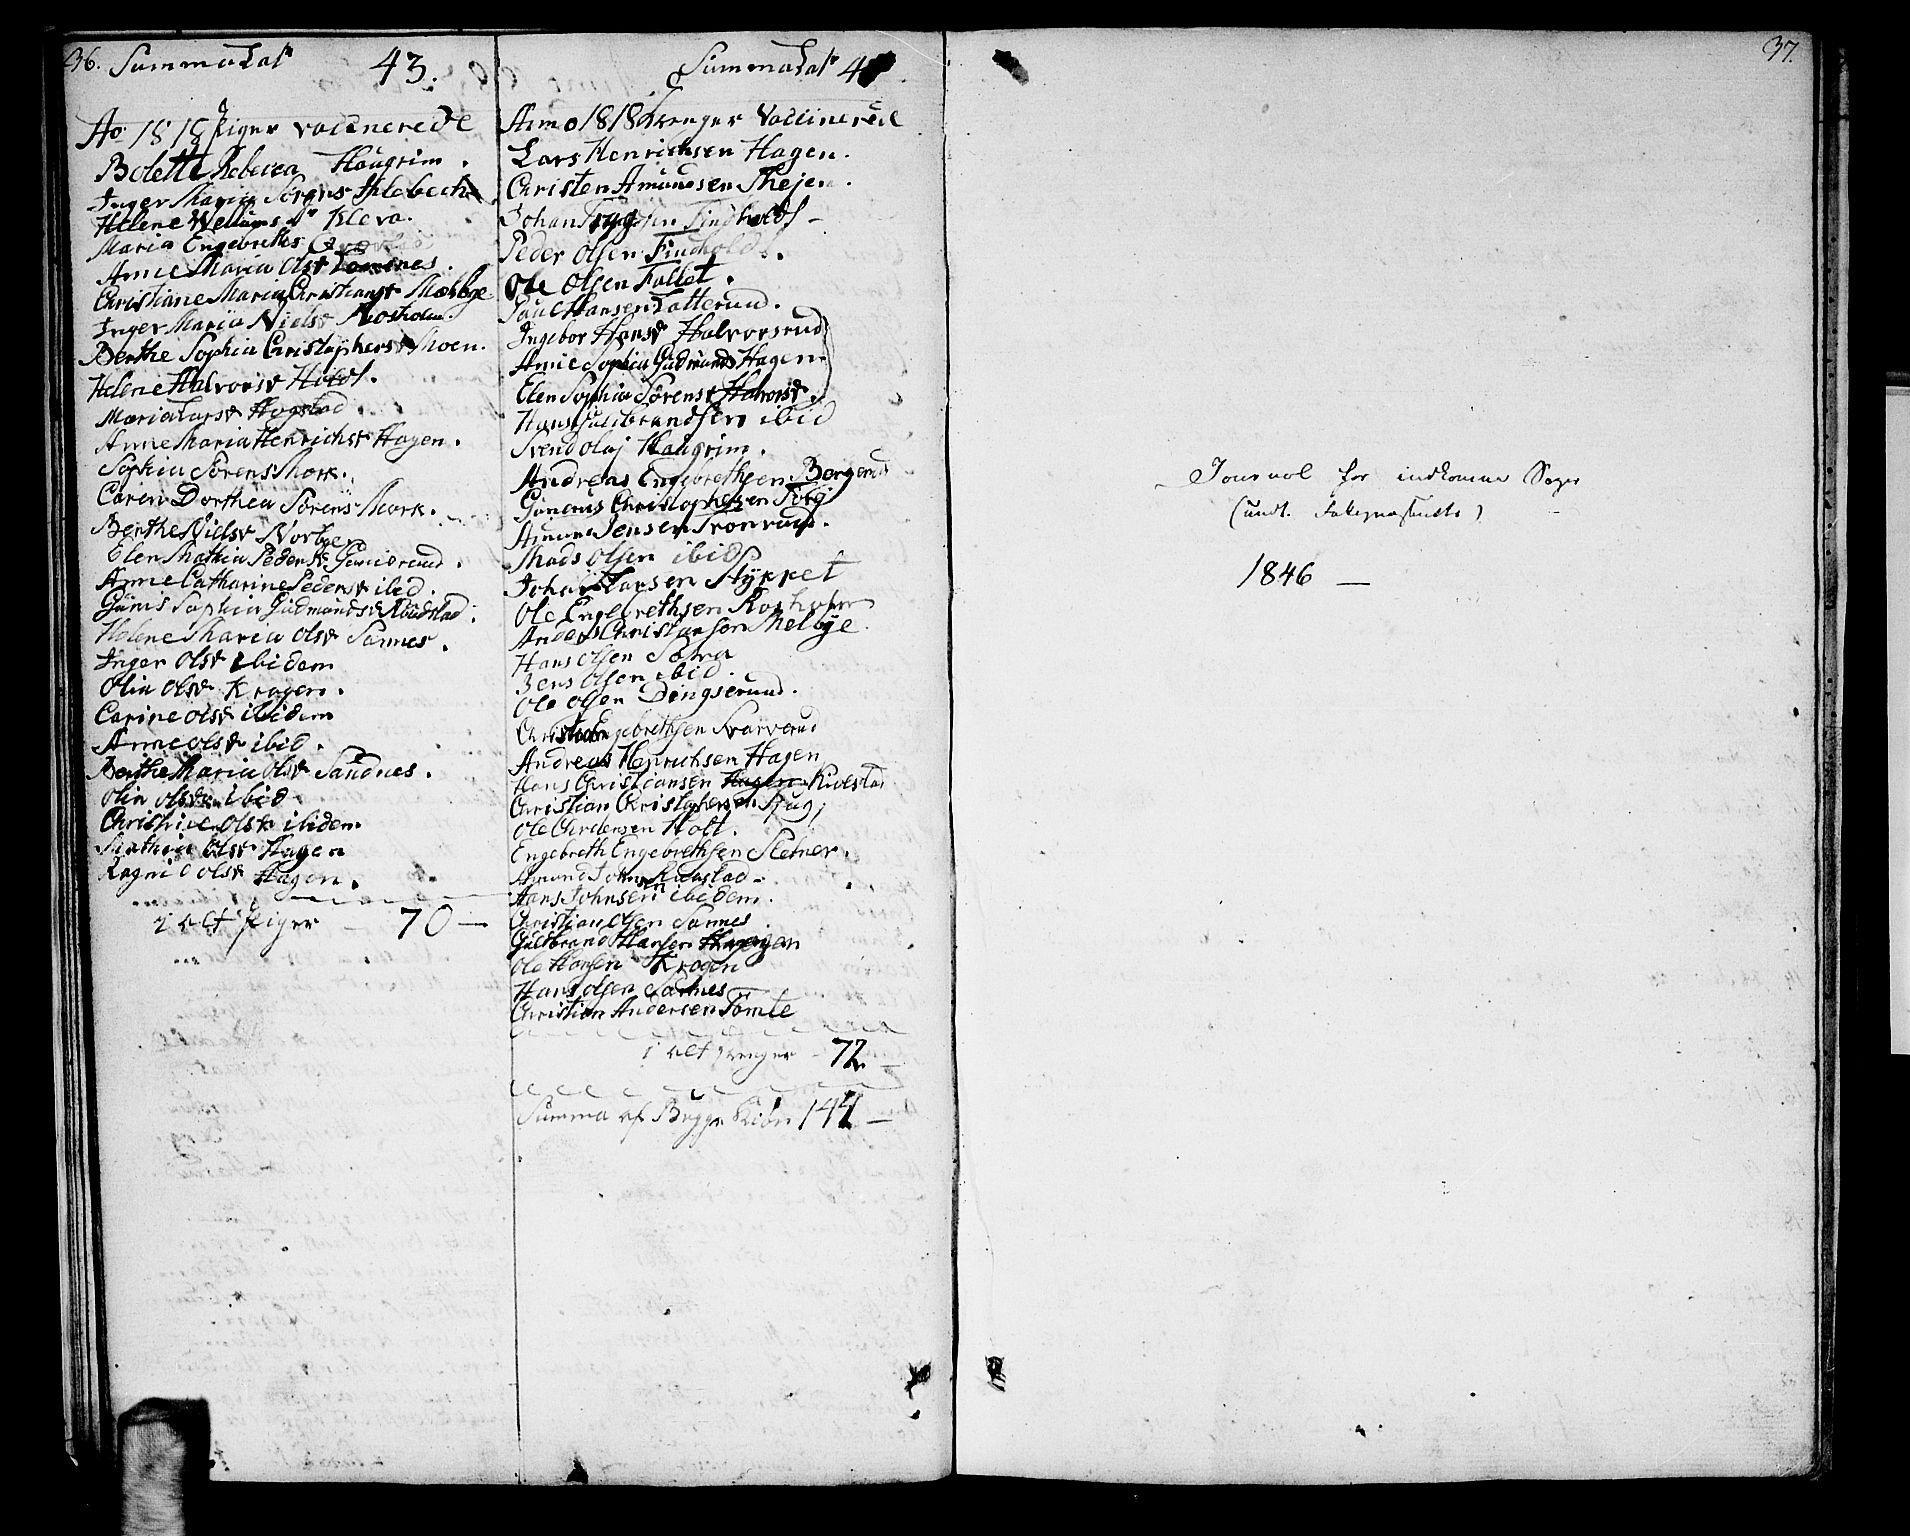 36. Summa Lat 43.
Ao 1818 Piger vaccinerede
Bolette Rebecca Haugrim.
Inger Maria Sørens
Helene Kleva.
Maria Engebreths
Anne Maria Olsdr
Christiane Maria Christiansdr Melbye
Inger Maria Nielsdr Rosholm
Berthe Sophia Christophersdr Moen.
Helene Halvorsdr Holdt.
Maria Larsdr Hogstad
Anne Maria Henrichsdr Hagen.
Sophia Sørens Mork.
Caren Dorthea Sørens Mork.
Berthe Nielsdr Norbye
Elen Mathia Pedersdr
Anne Catharine Pedersdr ibid.
Gunis Sophia Gudmundsdr Rudstad.
Helene Maria Olsdr Sannes.
Inger Olsdr ibidem
Olia Olsdr Kragen.
Carine Olsdr ibidem
Anne Olsdr ibid.
Berthe Maria Olsdr Sandnes.
Olia Olsdr ibid
Christine Olsdr ibidem
Mathia Olsdr Hagen
Ragnil Olsdr Hagen.
i alt Piger — 70 —
Summa Lat 4
Anno 1818 Drenger Vaccinerede
Lars Henrichsen Hagen.
Christen Amundsen Skejen.
Johan Findholdt
Peder Olsen Findholdt.
Ole Olsen Fallet.
Paul Hansen Latterud.
Ingebor Hansdr Halvorsrud
Anne Sophia Gudmunds Hagen
Elen Sophia Sørensdr Halvorsr.
Hans Gulbrandsen ibid
Svend Olaj Haugrim.
Andreas Engebrethsen Bergerud
Gunerus Christophersen
Jensen Tronrud.
Mads Olsen ibid
Johan Larsen Stykket
Ole Engebrethsen Rosholm
Anders Christiansen Melbye.
Hans Olsen Sætra
Jens Olsen ibid.
Ole Olsen Dingserud.
Christian Engebrethsen Svarverud
Andreas Henrichsen Hagen
Hans Christiansen Hagen Rudstad
Christian Christophersen
Ole Andersen Holt.
Engebreth Engebrethsen Sletner.
Amund Johnsen Rudstad
Hans Johnsen ibidem.
Christian Olsen Sannes
Gulbrand Hansen Kragen
Ole Hansen Kragen
Hans Olsen Sannes
Christian Andersen Tomte
i alt Drenger — 72 —
Summa af Begge Kiøn 142 —
37.
Journal for indkomne Sager
(undt. )
1846 —